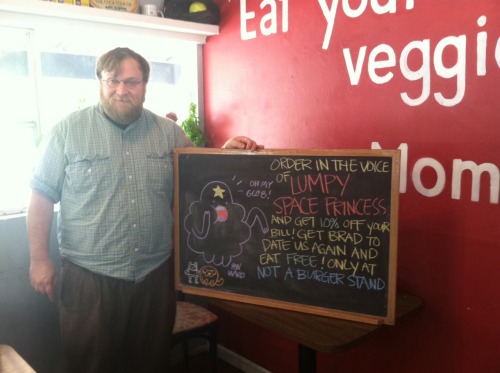 Eat your
veggie
Mom
ORDER IN THE VOICE
OF LUMPY
SPACE PRINCESS
AND GET 10% OFF YOUR
BILL! GET BRAD TO
DATE US AGAIN AND
EAT FREE! ONLY AT
NOT A BURGER STAND
OH MY
GLOB!